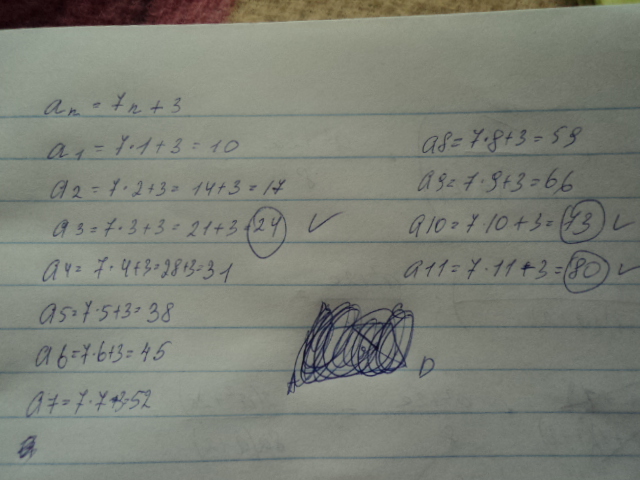 an = 7n + 3
a1 = 7·1+3 = 10
a2 = 7·2+3 = 14+3 = 17
a3 = 7·3+3 = 21+3=24 ✓
a4 = 7·4+3=28+3=31
a5=7·5+3=38
a6=7·6+3=45
a7=7·7+3=52
a8=7·8+3=59
a9=7·9+3=66
a10=7·10+3=73 ✓
a11=7·11+3=80 ✓
A D